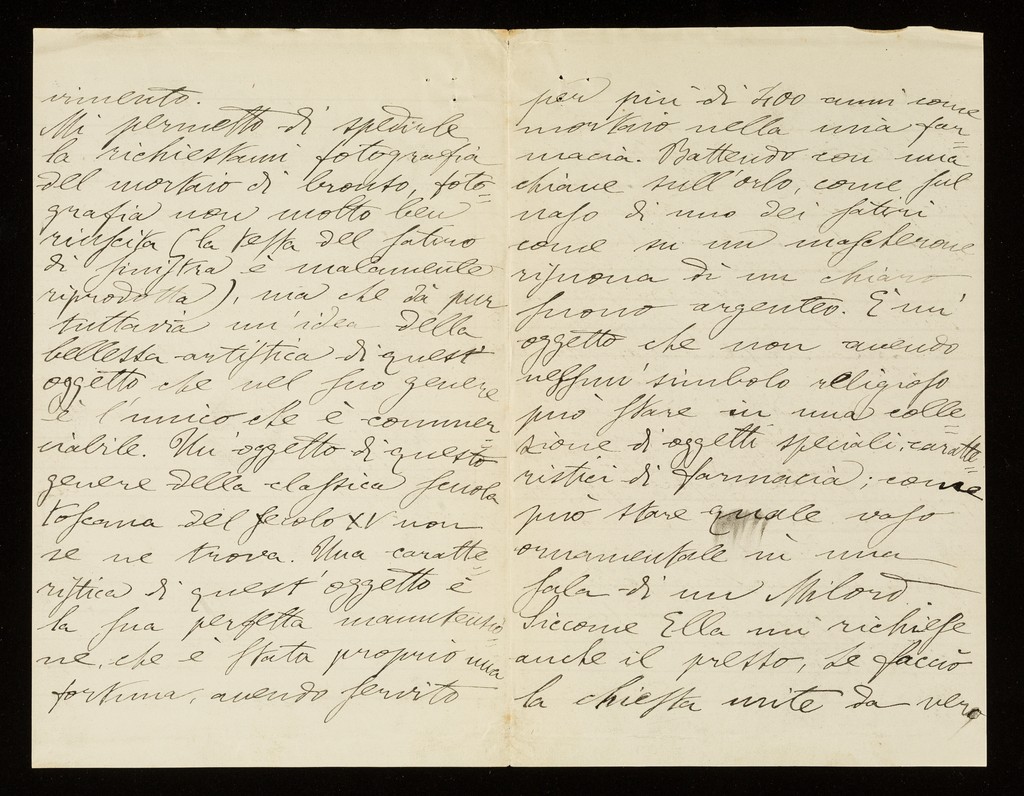 vimento.
Mi permetto di spedirle
la richiestami fotografia
del mortaio di bronzo, foto=
grafia non molto ben
riuscita (la testa del satiro
di sinistra è malamente
riprodotta), ma che dà pur
tuttavia un'idea della
bellezza artistica di quest'
oggetto che nel suo genere
è l'unico che è commer=
ciabile. Un oggetto di questo
genere della classica scuola
toscana del secolo XV non
se ne trova. Una caratte=
ristica di quest oggetto è
la sua perfetta manutenzio=
ne, che è stata proprio una
fortuna, avendo servito
per più di 400 anni come
mortaio nella mia far=
macia. Battendo con una
chiave sull'orlo, come sul
naso di uno dei satiri
come su un mascherone
risuona di un chiaro
suono argenteo. È un'
oggetto che non avendo
nessun' simbolo religioso
può stare in una colle=
zione di oggetti speciali, caratte=
ristici di farmacia; come
può stare quale vaso
ornamentale in una
sala di un Milord
Siccome Ella mi richiese
anche il prezzo, Le faccio
la chiesta mite da vero